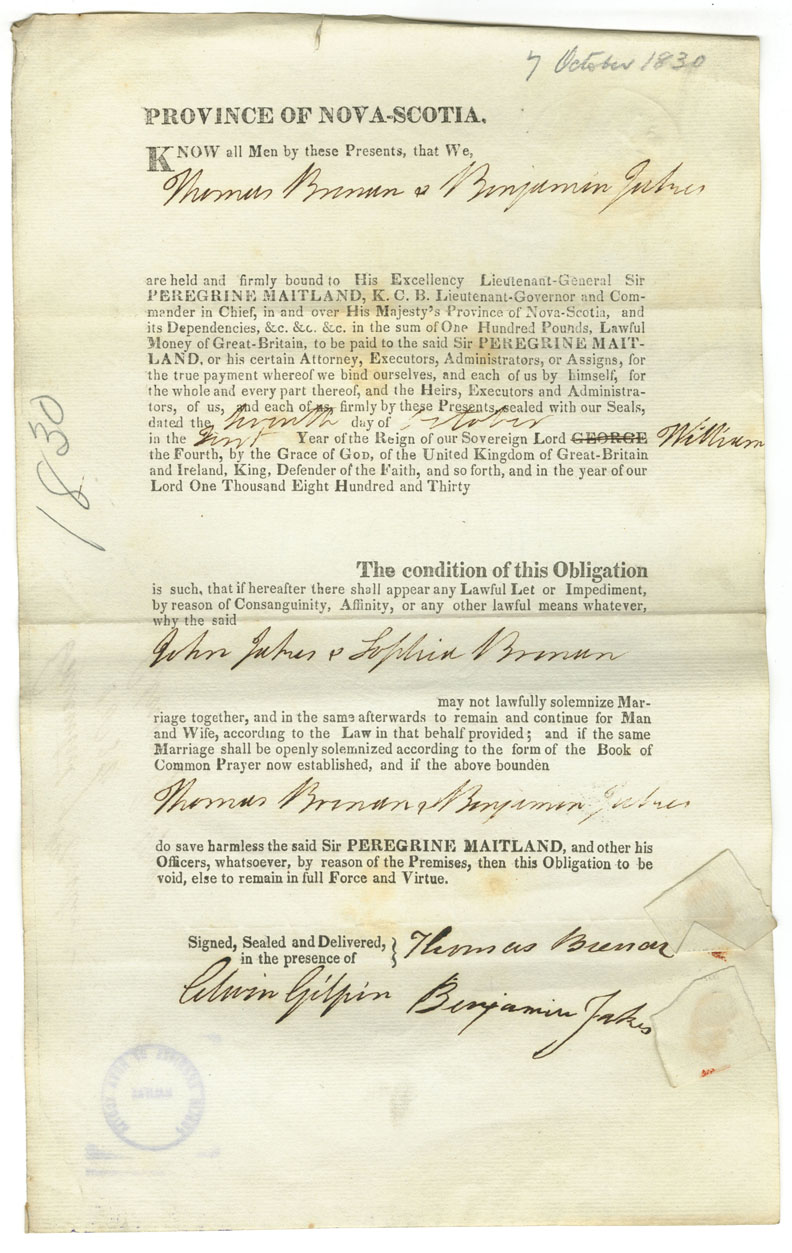 7 October 1830
PROVINCE OF NOVA-SCOTIA.
KNOW all Men by these Presents, that We,
Thomas Brenan & Benjamin Jakes
are held and firmly bound to His Excellency Lieutenant-General Sir
PEREGRINE MAITLAND, K. C. B. Lieutenant-Governor and Com-
mander in Chief, in and over His Majesty's Province of Nova-Scotia, and
its Dependencies, &c. &c. &c. in the sum of One Hundred Pounds, Lawful
Money of Great-Britain, to be paid to the said Sir PEREGRINE MAIT-
LAND, or his certain Attorney, Executors, Administrators, or Assigns, for
the true payment whereof we bind ourselves, and each of us by himself, for
the whole and every part thereof, and the Heirs, Executors and Administra-
tors, of us, and each of us firmly by these Presents, sealed with our Seals,
dated the Seventh day of October
in the First Year of the Reign of our Sovereign Lord GEORGE William
the Fourth, by the Grace of God, of the United Kingdom of Great-Britain
and Ireland, King, Defender of the Faith, and so forth, and in the year of our
Lord One Thousand Eight Hundred and Thirty
1830
The condition of this Obligation
is such, that if hereafter there shall appear any Lawful Let or Impediment,
by reason of Consanguinity, Affinity, or any other lawful means whatever,
why the said
John Jakes & Sophia Brenan
may not lawfully solemnize Mar-
riage together, and in the same afterwards to remain and continue for Man
and Wife, according to the Law in that behalf provided; and if the same
Marriage shall be openly solemnized according to the form of the Book of
Common Prayer now established, and if the above bounden
Thomas Brenan & Benjamin Jakes
do save harmless the said Sir PEREGRINE MAITLAND, and other his
Officers, whatsoever, by reason of the Premises, then this Obligation to be
void, else to remain in full Force and Virtue.
Signed, Sealed and Delivered, } Thomas Brenan
in the presence of
Edwin Gilpin Benjamin Jakes